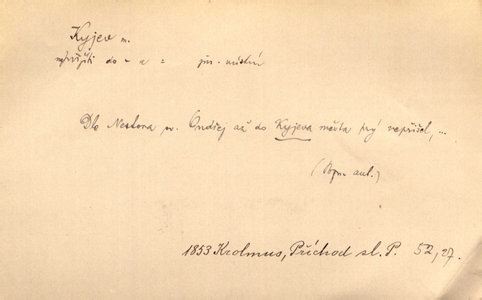 Kyjev m.
nepřijíti do - a - jm. místní
Dle Nestora sv. Ondřej až do Kyjeva města prý nepřišel, ...
(Pozn. aut.)
1853 Krolmus, Příchod sl. P. 52, 27.